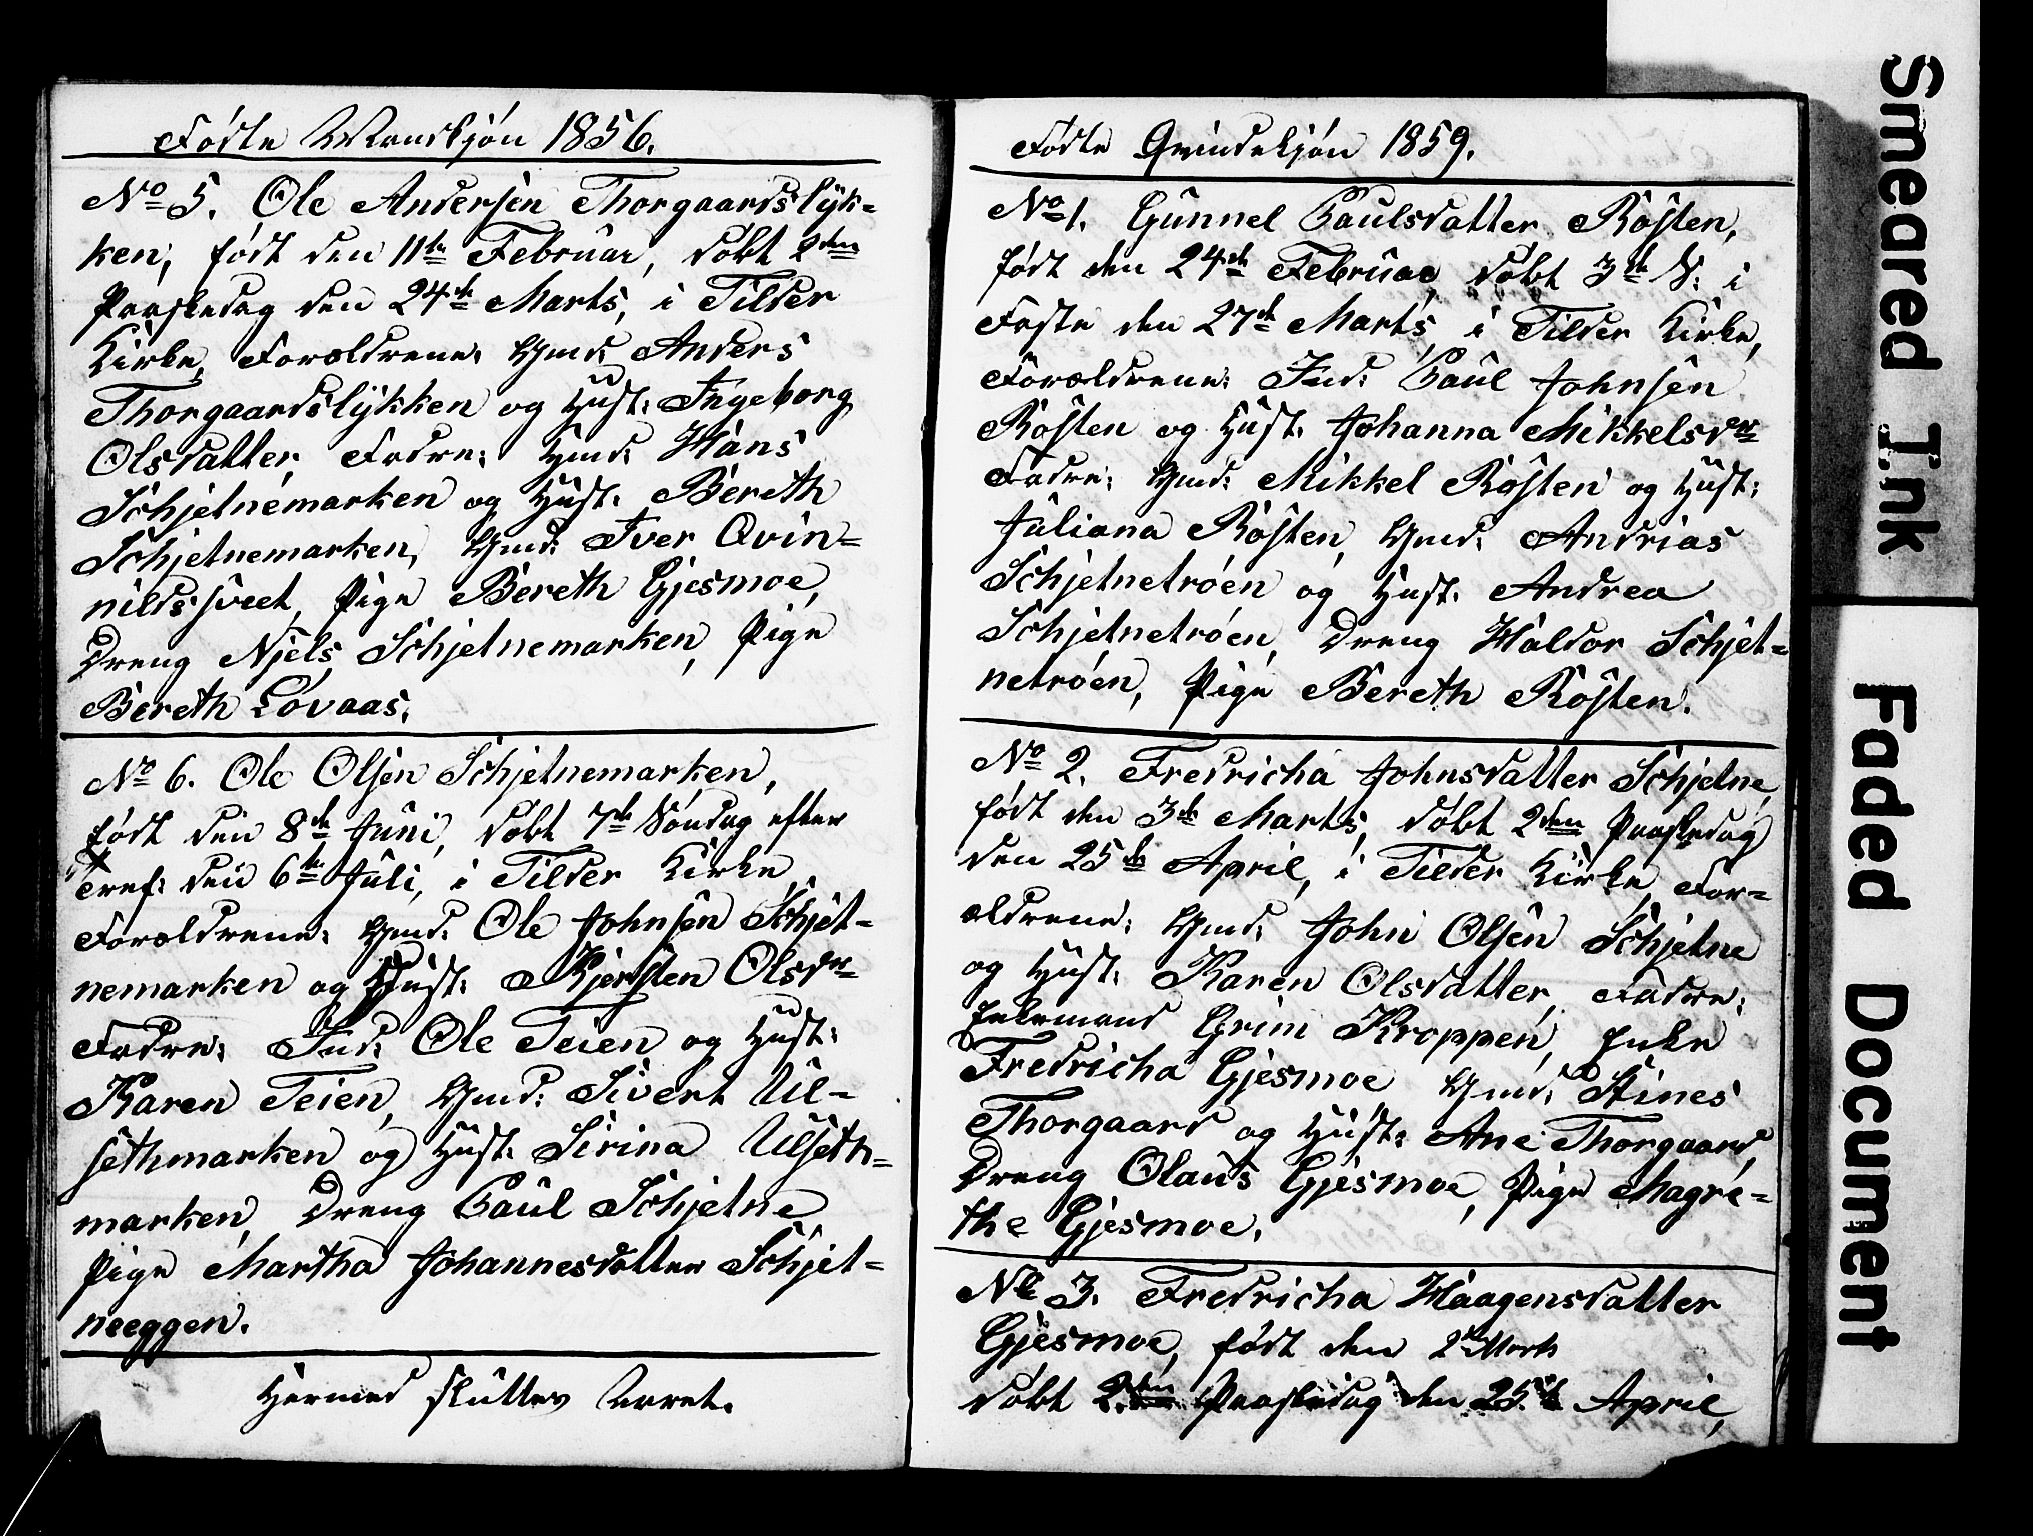 Fødte Mandkjøn 1856.
No 5. Ole Andersen Thorgaardslyk-
ken, født den 11te Februar, døbt 2den
Paaskedag den 24de Marts, i Tilder
Kirke, Forældrene: Gmd: Anders
Thorgaardslykken og Hust: Ingeborg
Olsdatter, Fadre: Gmd: Hans
Schjetnemarken og Hust: Bereth
Schjetnemarken, Gmd: Iver Qvin-
nildssveet, Pige Bereth Gjesmoe,
Dreng Njels Schjetnemarken, Pige
Bereth Løvaas.
No 6. Ole Olsen Schjetnemarken,
født den 8de Juni, døbt 7de Søndag efter
Tref: den 6te Juli, i Tilder Kirke,
Forældrene: Gmd: Ole Johnsen Schjet-
nemarken og Hust: Kjersten Olsdr
Fadre: Ind: Ole Teien og Hust:
Karen Teien, Gmd: Sivert Ul-
sethmarken og Hust: Sirina Ulseth-
marken, Dreng Paul Schjetne
Pige Martha Johannesdatter Schjet-
neeggen.
Hermed sluttes Aaret.
Fødte Qvindekjøn 1859.
No 1. Gunnel Paulsdatter Røsten,
født den 24de Februar, døbt 3de S: i
Faste den 27de Marts, i Tilder Kirke,
Forældrene: Ind: Paul Johnsen
Røsten og Hust: Johanna Mikkelsdr
Fadre: Gmd: Mikkel Røsten og Hust:
Juliana Røsten, Gmd: Andrias
Schjetnetrøen og Hust: Andrea
Schjetnetrøen, Dreng Haldor Schjet-
netrøen, Pige Bereth Røsten.
No 2. Fredricha Johnsdatter Schjetne,
født den 3de Marts, døbt 2den Paaskedag
den 25de April, i Tilder Kirke, For-
ældrene: Gmd: John Olsen Schjetne
og Hust: Karen Olsdatter, Fadre:
Enkemand Grim Kroppen, Enke
Fredricha Gjesmoe Gmd: Stines
Thorgaard og Hust: Ane Thorgaard,
Dreng Olaus Gjesmoe, Pige Magre-
the Gjesmoe.
No 3. Fredricha Haagensdatter
Gjesmoe, født den 2 Marts
døbt 2den Paaskedag den 25de April,
Smeared Ink
Faded Document